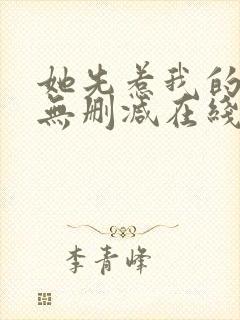 她先惹我的
無删减在綫
李青峰